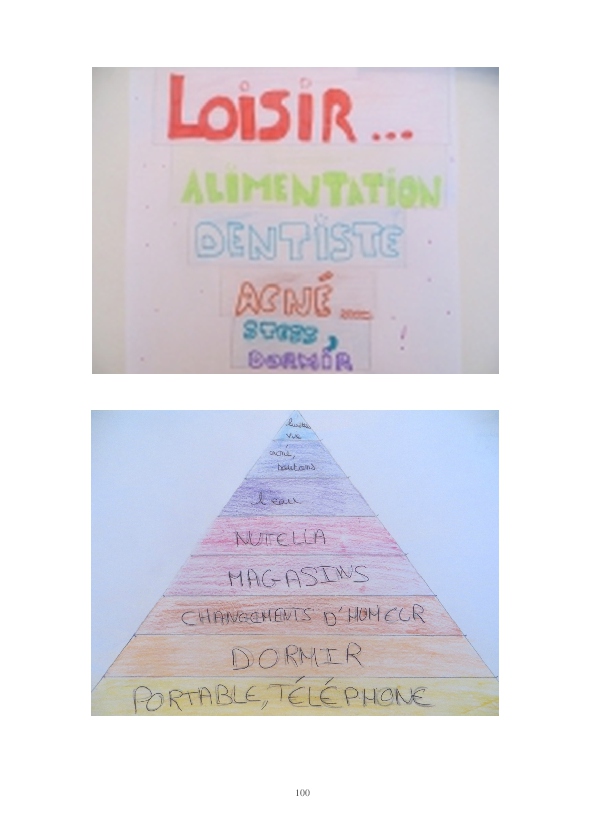 LOISIR...
ALIMENTATION
DENTISTE
ACNÉ...
STESS,
!
DORMIR
vue
acné,
boutons
l'eau
NUTELLA
MAGASINS
CHANGEMENTS D'HUMEUR
DORMIR
PORTABLE, TÉLÉPHONE
100